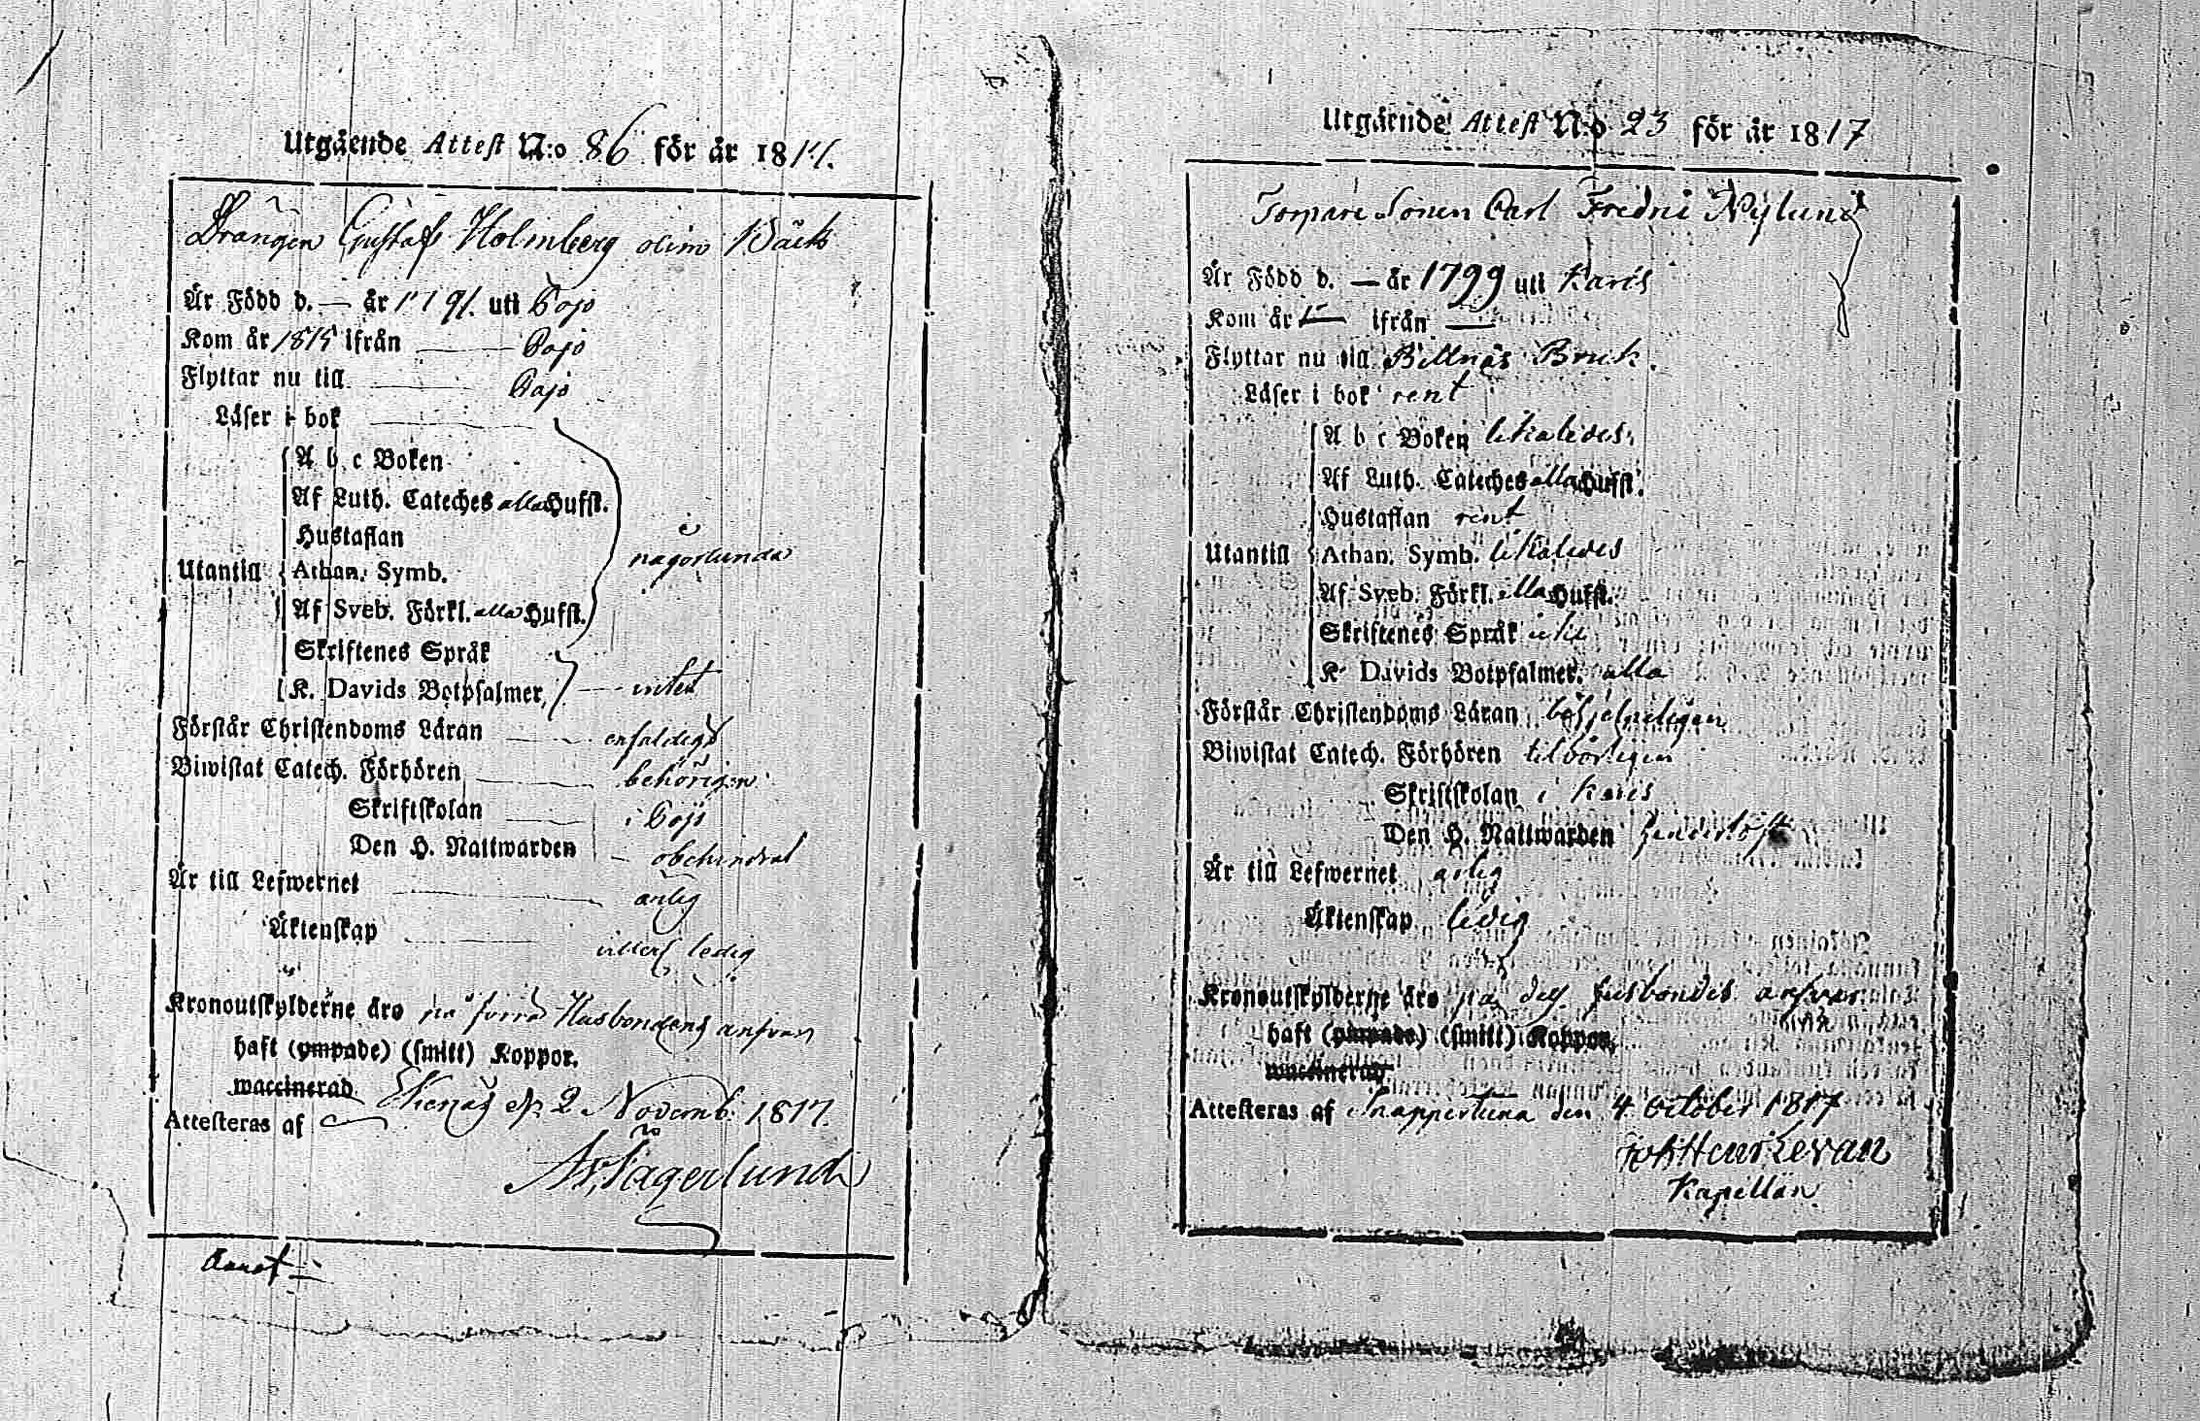 Utgående Attest N:o 86 för år 1817.
Drängen Gustaf Holmberg olim Bäck
Är Född d. — år 1791. uti Pojo
Kom år 1815 ifrån Pojo
Flyttar nu till Pojo
Läser i bok
A b c Boken
Af Luth. Cateches alla Hufst.
Hustaflan
någorlunda
Utantill Athan. Symb.
Af Sveb. Förkl. alla Hufst.
Skriftenes Språk
K. Davids Botpsalmer, intet
Förstår Christendoms Läran enfaldigt
Biwistat Catech. Förhören behörigen
Skriftskolan i Pojo
Den H. Nattwarden obehindrat
Är till Lefwernet ärlig
Äktenskap ledig
Kronoutskylderne äro på förra Husbondens answar
haft (ympade) (smitt) Koppor.
waccinerad
Attesteras af Ekenäs d. 2 Novemb. 1817.
Fagerlund
Annot:
Utgående Attest N:o 23 för år 1817
Torpare Sonen Carl Fredric Nylund
Är Född d. — år 1799 uti Karis
Kom år — ifrån —
Flyttar nu till Billnäs Bruk.
Läser i bok rent
A b c Boken likaledes.
Af Luth. Cateches alla Hufst.
Hustaflan rent
Utantill Athan. Symb. likaledes
Af Sveb. Förkl. alla Hufst.
Skriftenes Språk icke
K Davids Botpsalmer. alla
Förstår Christendoms Läran hjelpeligen
Biwistat Catech. Förhören tilbörligen
Skriftskolan i Karis
Den H. Nattwarden
Är till Lefwernet ärlig
Äktenskap ledig
Kronoutskylderne äro på dess husbondes answar
haft (ympade) (smitt) Koppor,
waccinerad
Attesteras af Snappertuna den 4 October 1817
Joh Henr Levan
Kapellan